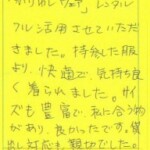 レンタル
フル活用させていただ
きました。持参した服
より、快適で、気持ち良
く着られました。サイ
ズも豊富で、私に合う物
があり、良かったです。貸
出し対応も、親切でした。